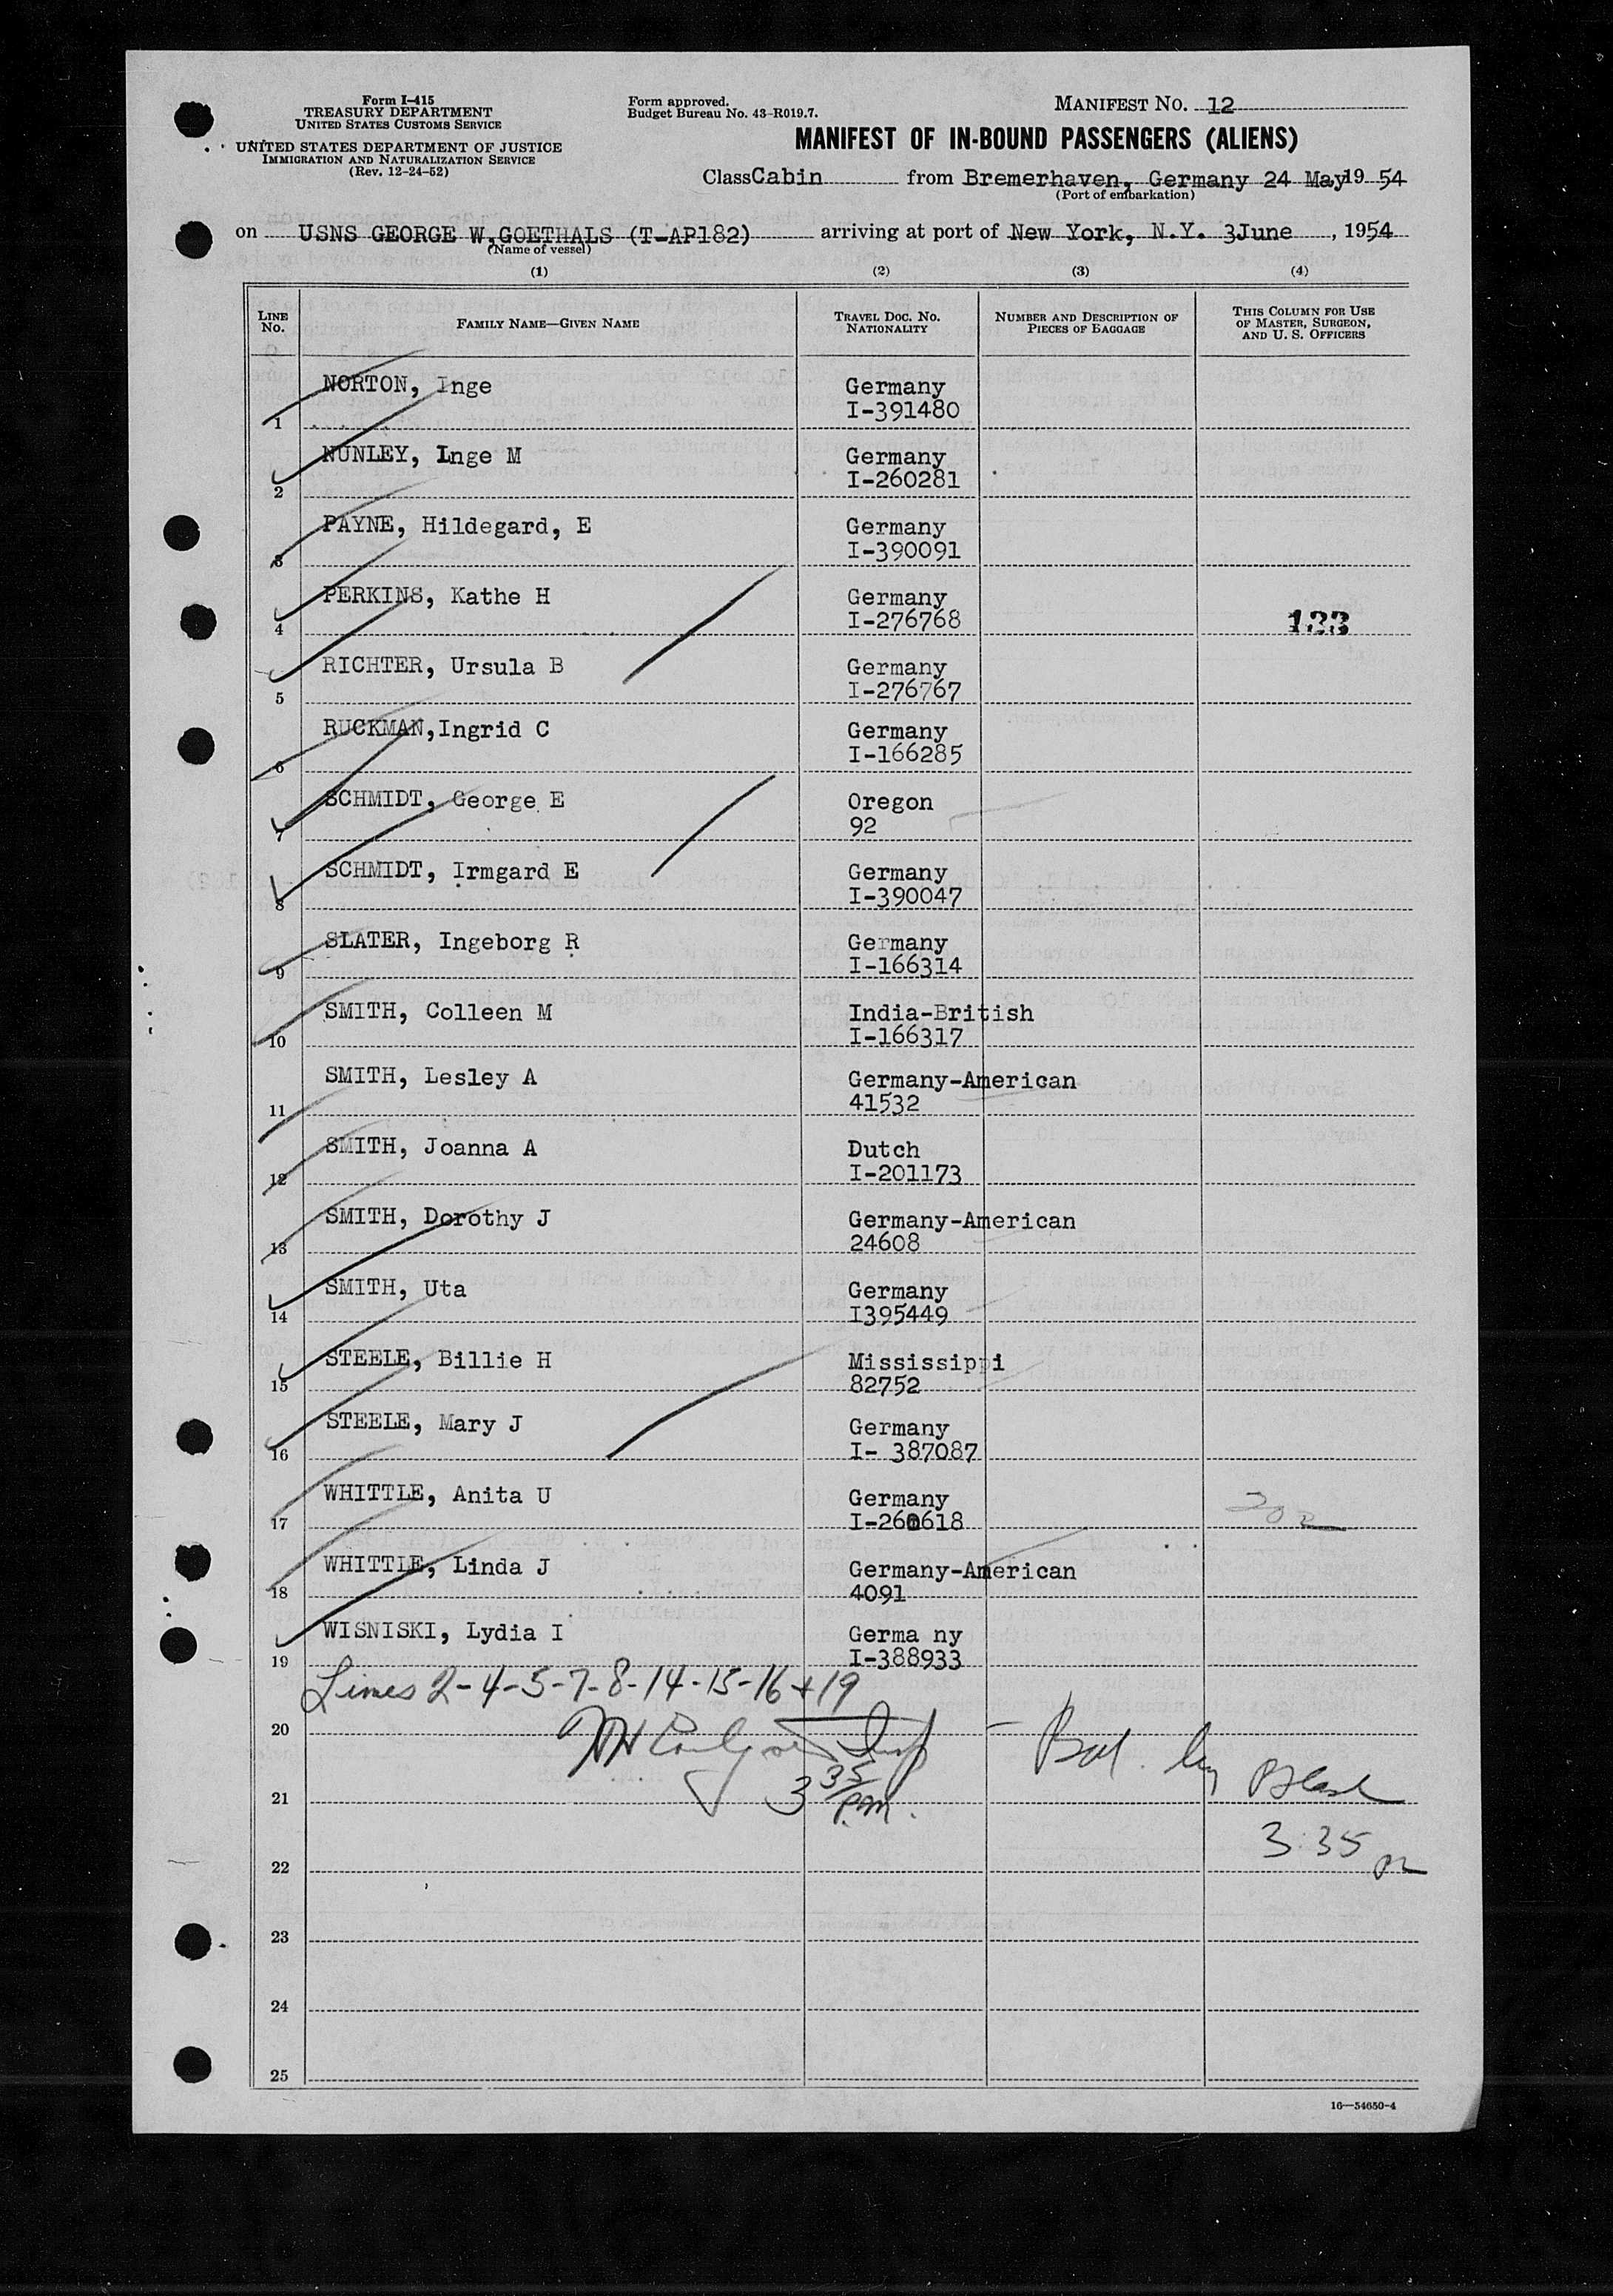 Form I-415
TREASURY DEPARTMENT
UNITED STATES CUSTOMS SERVICE
UNITED STATES DEPARTMENT OF JUSTICE
IMMIGRATION AND NATURALIZATION SERVICE
(Rev. 12-24-52)
Form approved.
Budget Bureau No. 43-R019.7.
MANIFEST NO. 12
MANIFEST OF IN-BOUND PASSENGERS (ALIENS)
Class Cabin from Bremerhaven, Germany 24 May 19 54
(Port of embarkation)
on USNS GEORGE W.GOETHALS (T-AP182) arriving at port of New York, N.Y. 3June , 1954
(Name of vessel)
(1) (2) (3) (4)
LINE NO. FAMILY NAME—GIVEN NAME TRAVEL DOC. NO. NATIONALITY NUMBER AND DESCRIPTION OF PIECES OF BAGGAGE THIS COLUMN FOR USE OF MASTER, SURGEON, AND U. S. OFFICERS
NORTON, Inge Germany
1 I-391480
NUNLEY, Inge M Germany
2 I-260281
PAYNE, Hildegard, E Germany
3 I-390091
PERKINS, Kathe H Germany
4 I-276768 133
RICHTER, Ursula B Germany
5 I-276767
RUCKMAN,Ingrid C Germany
6 I-166285
SCHMIDT, George E Oregon
7 92
SCHMIDT, Irmgard E Germany
8 I-390047
SLATER, Ingeborg R Germany
9 I-166314
SMITH, Colleen M India-British
10 I-166317
SMITH, Lesley A Germany-American
11 41532
SMITH, Joanna A Dutch
12 I-201173
SMITH, Dorothy J Germany-American
13 24608
SMITH, Uta Germany
14 I395449
STEELE, Billie H Mississippi
15 82752
STEELE, Mary J Germany
16 I- 387087
WHITTLE, Anita U Germany
17 I-260618 202
WHITTLE, Linda J Germany-American
18 4091
WISNISKI, Lydia I Germa ny
19 I-388933
Lines 2-4-5-7-8-14-15-16 + 19
20
Insp - Bal. by
21 3 35 P.M.
22 3:35 pm
23
24
25
16—54650-4